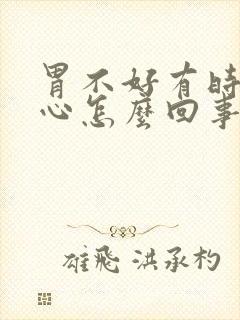 胃不好有時
心怎麼回事
雄飛 洪承杓